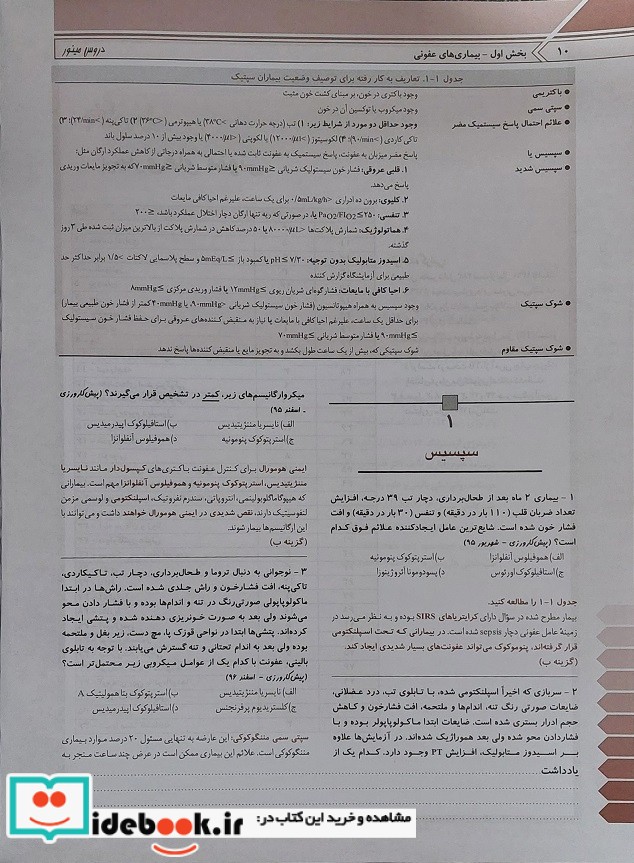 ۱۰ بخش اول - بیماری‌های عفونی
دروس مینور
جدول ۱-۱. تعاریف به کار رفته برای توصیف وضعیت بیماران سپتیک
باکتریمی وجود باکتری در خون، بر مبنای کشت خون مثبت
سپتی سمی وجود میکروب یا توکسین آن در خون
علائم احتمال پاسخ سیستمیک مضر وجود حداقل دو مورد از شرایط زیر: ۱) تب (درجه حرارت دهانی >۳۸°C) یا هیپوترمی (<۳۶°C) ۲) تاکی‌پنه (>۲۴/min)؛ ۳)
تاکی کاردی (>۹۰/min)؛ ۴) لکوسیتوز (>۱۲۰۰۰/μl) یا لکوپنی (<۴۰۰۰/μl) یا وجود بیش از ۱۰ درصد سلول باند
سپسیس یا پاسخ مضر میزبان به عفونت، پاسخ سیستمیک به عفونت ثابت شده یا احتمالی به همراه درجاتی از کاهش عملکرد ارگان مثل:
سپسیس شدید ۱. قلبی عروقی: فشار خون سیستولیک شریانی ≤۹۰mmHg یا فشار متوسط شریانی ≤۷۰mmHg که به تجویز مایعات وریدی
پاسخ می‌دهد.
۲. کلیوی: برون ده ادراری <۰/۵mL/kg/h برای یک ساعت، علیرغم احیا کافی مایعات
۳. تنفسی: PaO2/FIO2≤۲۵۰ یا، در صورتی که ریه تنها ارگان دچار اختلال عملکرد باشد، ≤۲۰۰
۴. هماتولوژیک: شمارش پلاکت‌ها <۸۰۰۰۰/μL یا ۵۰ درصد کاهش در شمارش پلاکت از بالاترین میزان ثبت شده طی ۳ روز
گذشته.
۵. اسیدوز متابولیک بدون توجیه: pH≤۷/۳۰ یا کمبود باز ≥۵mEq/L و سطح پلاسمایی لاکتات >۱/۵ برابر حداکثر حد
طبیعی برای آزمایشگاه گزارش کننده
۶. احیا کافی با مایعات: فشار گوه‌ای شریان ریوی ≥۱۲mmHg یا فشار وریدی مرکزی ≥۸mmHg
شوک سپتیک وجود سپسیس به همراه هیپوتانسیون (فشار خون سیستولیک شریانی <۹۰mmHg، یا ۴۰mmHg کمتر از فشار خون طبیعی بیمار)
برای حداقل یک ساعت، علیرغم احیا کافی با مایعات یا نیاز به منقبض کننده‌های عروقی برای حفظ فشار خون سیستولیک
≥۹۰mmHg یا فشار متوسط شریانی ≥۷۰mmHg
شوک سپتیک مقاوم شوک سپتیکی که، بیش از یک ساعت طول بکشد و به تجویز مایع یا منقبض کننده‌ها پاسخ ندهد
۱
سپسیس
۱ - بیماری ۲ ماه بعد از طحال‌برداری، دچار تب ۳۹ درجه، افزایش
تعداد ضربان قلب (۱۱۰ بار در دقیقه) و تنفس (۳۰ بار در دقیقه) و افت
فشار خون شده است. شایع‌ترین عامل ایجادکننده علائم فوق کدام
است؟ (پیش‌کارورزی - شهریور ۹۵)
الف) هموفیلوس آنفلوانزا ب) استرپتوکوک پنومونیه
ج) استافیلوکوک اورئوس د) پسودومونا آئروژینوزا
جدول ۱-۱ را مطالعه کنید.
بیمار مطرح شده در سؤال دارای کرایتریاهای SIRS بوده و به نظر می‌رسد در
زمینهٔ عامل عفونی دچار sepsis شده است. در بیمارانی که تحت اسپلنکتومی
قرار گرفته‌اند، پنوموکوک می‌تواند عفونت‌های بسیار شدیدی ایجاد کند.
(گزینه ب)
۲ - سربازی که اخیراً اسپلنکتومی شده، با تابلوی تب، درد عضلانی،
ضایعات صورتی رنگ تنه، اندام‌ها و ملتحمه، افت فشارخون و کاهش
حجم ادرار بستری شده است. ضایعات ابتدا ماکولوپاپولر بوده و با
فشاردادن محو شده ولی بعد هموراژیک شده‌اند. در آزمایش‌ها علاوه
بر اسیدوز متابولیک، افزایش PT وجود دارد. کدام یک از
میکروارگانیسم‌های زیر، کمتر در تشخیص قرار می‌گیرند؟ (پیش‌کارورزی
- اسفند ۹۵)
الف) نایسریا مننژیتیدیس ب) استافیلوکوک اپیدرمیدیس
ج) استرپتوکوک پنومونیه د) هموفیلوس آنفلوانزا
ایمنی هومورال برای کنترل عفونت باکتری‌های کپسول‌دار مانند نایسریا
مننژیتیدیس، استرپتوکوک پنومونیه و هموفیلوس آنفلوانزا مهم است. بیمارانی
که هیپوگاماگلوبولینمی، آنتروپاتی، سندرم نفروتیک، اسپلنکتومی و لوسمی مزمن
لنفوسیتیک دارند، نقص شدیدی در ایمنی هومورال خواهند داشت و می‌توانند با
این ارگانیسم‌ها بیمار شوند.
(گزینه ب)
۳ - نوجوانی به دنبال تروما و طحال‌برداری، دچار تب، تاکیکاردی،
تاکی‌پنه، افت فشارخون و راش جلدی شده است. راش‌ها در ابتدا
ماکولوپاپولی صورتی‌رنگ در تنه و اندام‌ها بوده و با فشار دادن محو
می‌شوند ولی بعد به صورت خونریزی دهنده شده و پتشی ایجاد
کرده‌اند. پتشی‌ها ابتدا در نواحی قوزک پا، مچ دست، زیر بغل و ملتحمه
بوده ولی بعد به اندام تحتانی و تنه گسترش می‌یابند. با توجه به تابلوی
بالینی، عفونت با کدام یک از عوامل میکروبی زیر محتمل‌تر است؟
(پیش‌کارورزی - اسفند ۹۶)
الف) نایسریا مننژیتیدیس ب) استرپتوکوک بتا همولیتیک A
ج) کلستریدیوم پرفرنجنس د) استافیلوکوک اپیدرمیدیس
سپتی سمی مننگوکوکی: این عارضه به تنهایی مسئول ۲۰ درصد موارد بیماری
مننگوکوکی است. علائم این بیماری ممکن است در عرض چند ساعت منجر به
یادداشت
مشاهده و خرید این کتاب در:
idebook.ir